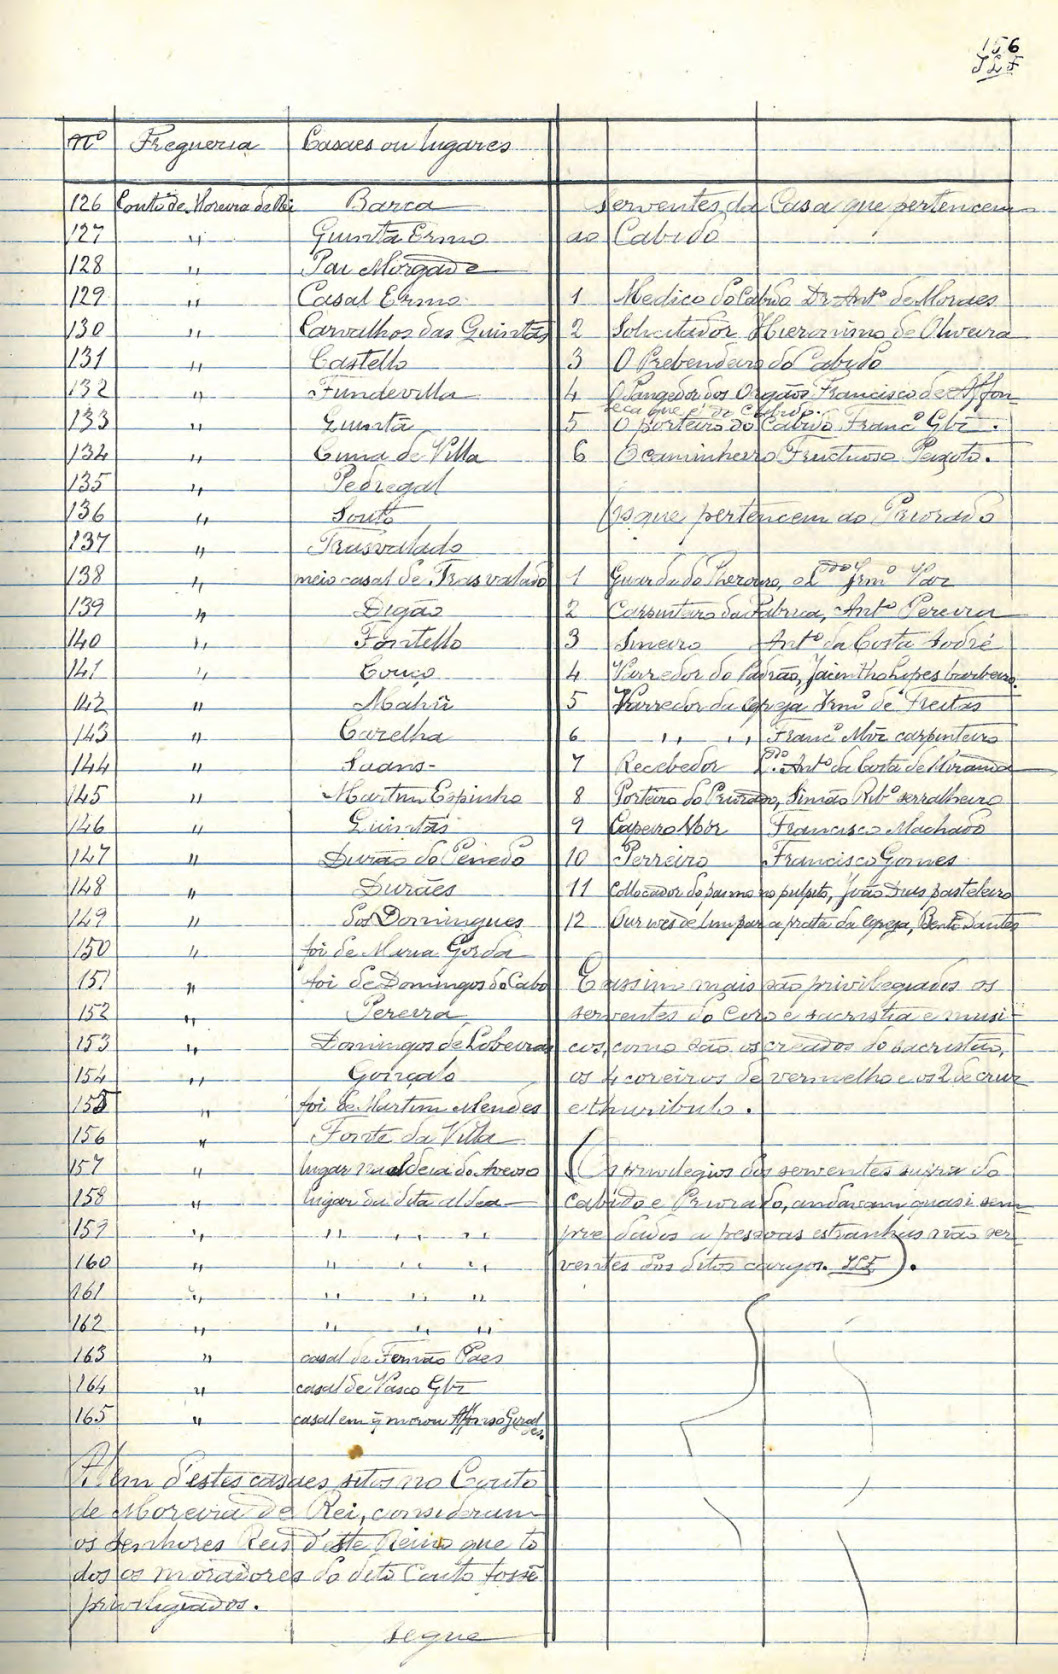 156
JLF
Nº Freguesia Casaes ou lugares
126 Couto de Moreira de Rei Barca
127 " Quinta Ermo
128 " Pai Morgade
129 " Casal Ermo
130 " Carvalhos das Quintãs
131 " Castello
132 " Fundevilla
133 " Quintã
134 " Cima de Villa
135 " Pedregal
136 " Souto
137 " Trasvalado
138 " meio casal de Trasvalado
139 " Digão
140 " Fontello
141 " Couço
142 "
143 " Carelha
144 "
145 " Martim Espinho
146 " Quintãs
147 " Durão do Penedo
148 " Durães
149 " dos Domingues
150 " foi de Maria Gorda
151 " foi de Domingos do Cabo
152 " Pereira
153 " Domingos de Lobeiras
154 " Gonçalo
155 " foi de Martim Mendes
156 " Fonte da Villa
157 " lugar na aldeia do
158 " lugar da dita aldea
159 " " " " "
160 " " " "
161 " " " "
162 " " " "
163 " casal de Fernão Paes
164 " casal de Vasco Glz
165 " casal em q̃ morou Affonso Geral
des.
Alem d'estes casaes sitos no Couto
de Moreira de Rei, consideram
os senhores Reis d'este Reino que to
dos os moradores do dito Couto fossẽ
privilegiados.
segue
Serventes da Casa que pertencem
ao Cabido
1 Medico do Cabido Dr Antº de Moraes
2 Solicitador Hieronimo de Oliveira
3 O Prebendeiro do Cabido
4 O Tangedor dos Orgãos Francisco de Affon-
seca que é do Cabido.
5 O porteiro do Cabido Francº Glz.
6 O caminheiro Fructuoso Peixoto.
Os que pertencem ao Priorado
1 Guarda do Thezouro, o Jrmº Vaz
2 Carpinteiro da Fabrica, Antº Pereira
3 Sineiro Antº da Costa Sodré
4 Varredor do Padrão, Jacintho Lopes barbeiro.
5 Varredor da egreja Jrmº de Freitas
6 " " Francº Mīz carpinteiro
7 Recebedor Antº da Costa de Miranda
8 Porteiro do Priorado, Simão Ribº serralheiro
9 Capeiro Mór Francisco Machado
10 Perreiro Francisco Gomes
11 Collocador do panno no pulpito, João Dias pasteleiro
12 Ourives de limpar a prata da egreja, Bento Dantes
E assim mais são privilegiados os
serventes do coro e sacristia e musi-
cos, como são os creados do sacristão,
os 4 coreiros de vermelho e os 2 de cruz
e thuribulo.
(Os privilegios dos serventes supra do
Cabido e Priorado, andavam quasi sem-
pre dados a pessoas estranhas não ser-
ventes dos ditos cargos. JLF).